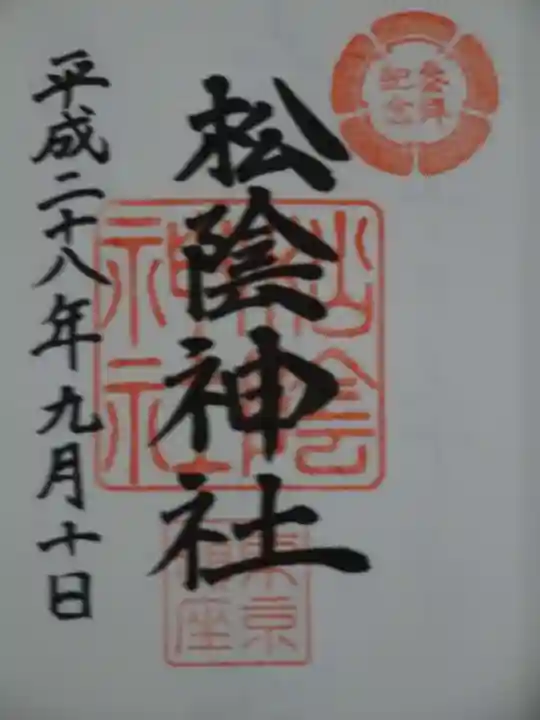 参拝
記念
松陰神社
松陰
神社
東京
鎮座
平成二十八年九月十日